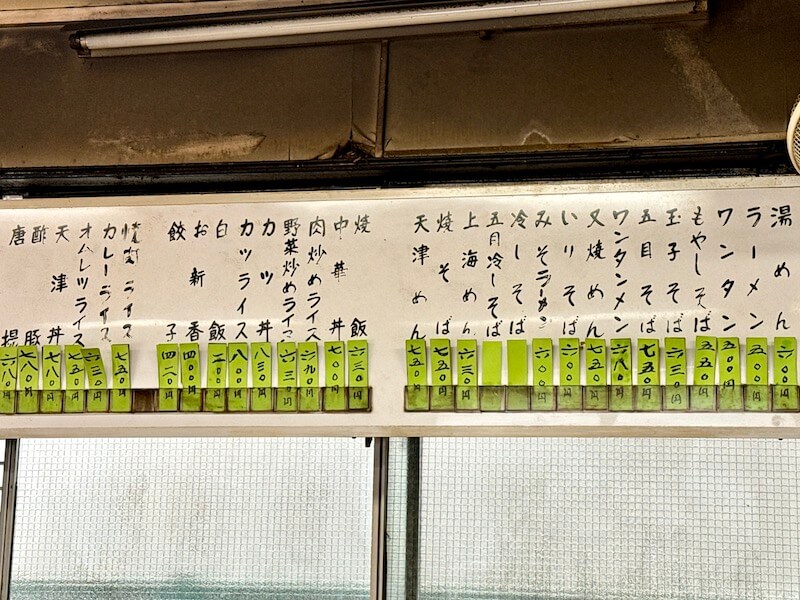 湯めん
ラーメン 五〇〇円
ワンタン 五〇〇円
もやしそば 五五〇円
玉子そば 六三〇円
五目そば 七五〇円
ワンタンメン 六八〇円
叉焼めん 七五〇円
いりそば 六〇〇円
みそラーメン 六〇〇円
冷しそば
五目冷しそば
上海めん 六三〇円
焼そば 七五〇円
天津めん 七五〇円
焼飯 六三〇円
中華丼 七〇〇円
肉炒めライス 六九〇円
野菜炒めライス 六三〇円
カツ丼 八三〇円
カツライス 八〇〇円
白飯 二〇〇円
お新香 四〇〇円
餃子 四二〇円
焼肉ライス 七五〇円
カレーライス 六三〇円
オムレツライス 七五〇円
天津丼 七八〇円
酢豚 七八〇円
唐揚 六八〇円